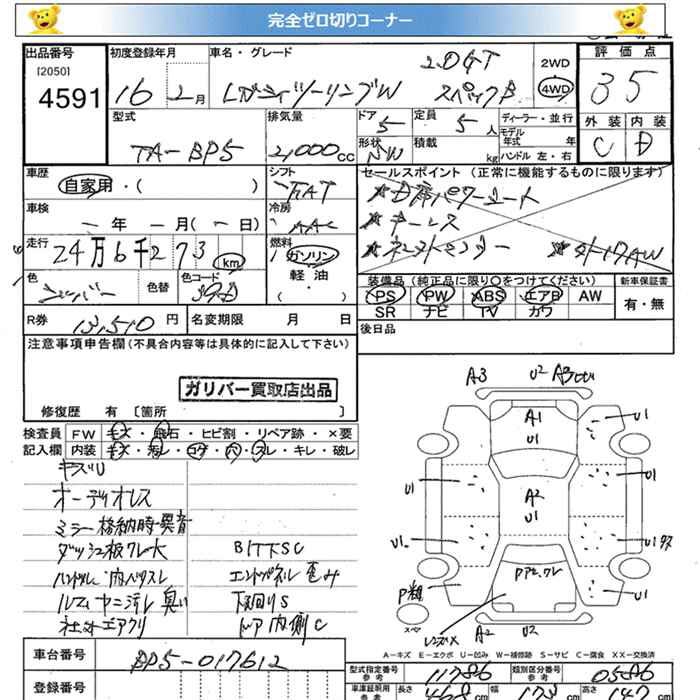 完全ゼロ切りコーナー
出品番号 初度登録年月 車名・グレード 評価点
[2050] 2.0GT 2WD
4591 16 2月 レガシィツーリングW スペックB 4WD 35
型式 排気量 ドア 定員 ディーラー・並行 外装 内装
5 5人 モデル年式 年
TA-BP5 2,000cc 形状 積載 kg ハンドル 左・右 C D
車歴 シフト セールスポイント (正常に機能するものに限ります)
自家用・( ) FAT ★D席パワーシート
車検 冷房 ★キーレス
ー年 ー月(ー日) AAC
走行 燃料 ★社外17AW
24万6千273 km ガソリン
色 色替 色コード 軽油 装備品 (純正品に限り○をつけてください) 新車保証書
シルバー (・) PS PW ABS エアB AW 有・無
R券 13,510円 名変期限 月 日 SR ナビ TV カワ
注意事項申告欄 (不具合内容等は具体的に記入して下さい) 後日品
ガリバー買取店出品
修復歴 有 [箇所 ]
検査員 FW キズ・飛石・ヒビ割・リペア跡・×要
記入欄 内装 キズ・汚レ・コゲ・穴・スレ・キレ・破レ
キズU
オーディオレス
ミラー格納時異音
ダッシュ板クレ大 BITTSC
ハンドル 内ベタスレ エンドパネル歪み
ルーム ヤニ汚レ 臭い 下回りS
社外エアクリ ドア内側C
A3 U2
A1
U1
U1
U1
U1
A2
U1
U1
U1
P粗
スペア
A2 U2
A=キズ E=エクボ U=凹み W=補修跡 S=サビ C=腐食 XX=交換済
車台番号 BP5-017612 型式指定番号 参考 11786 類別区分番号 参考 0586
登録番号 車庫証明用 参考 長さ cm 幅 173 cm 高さ cm